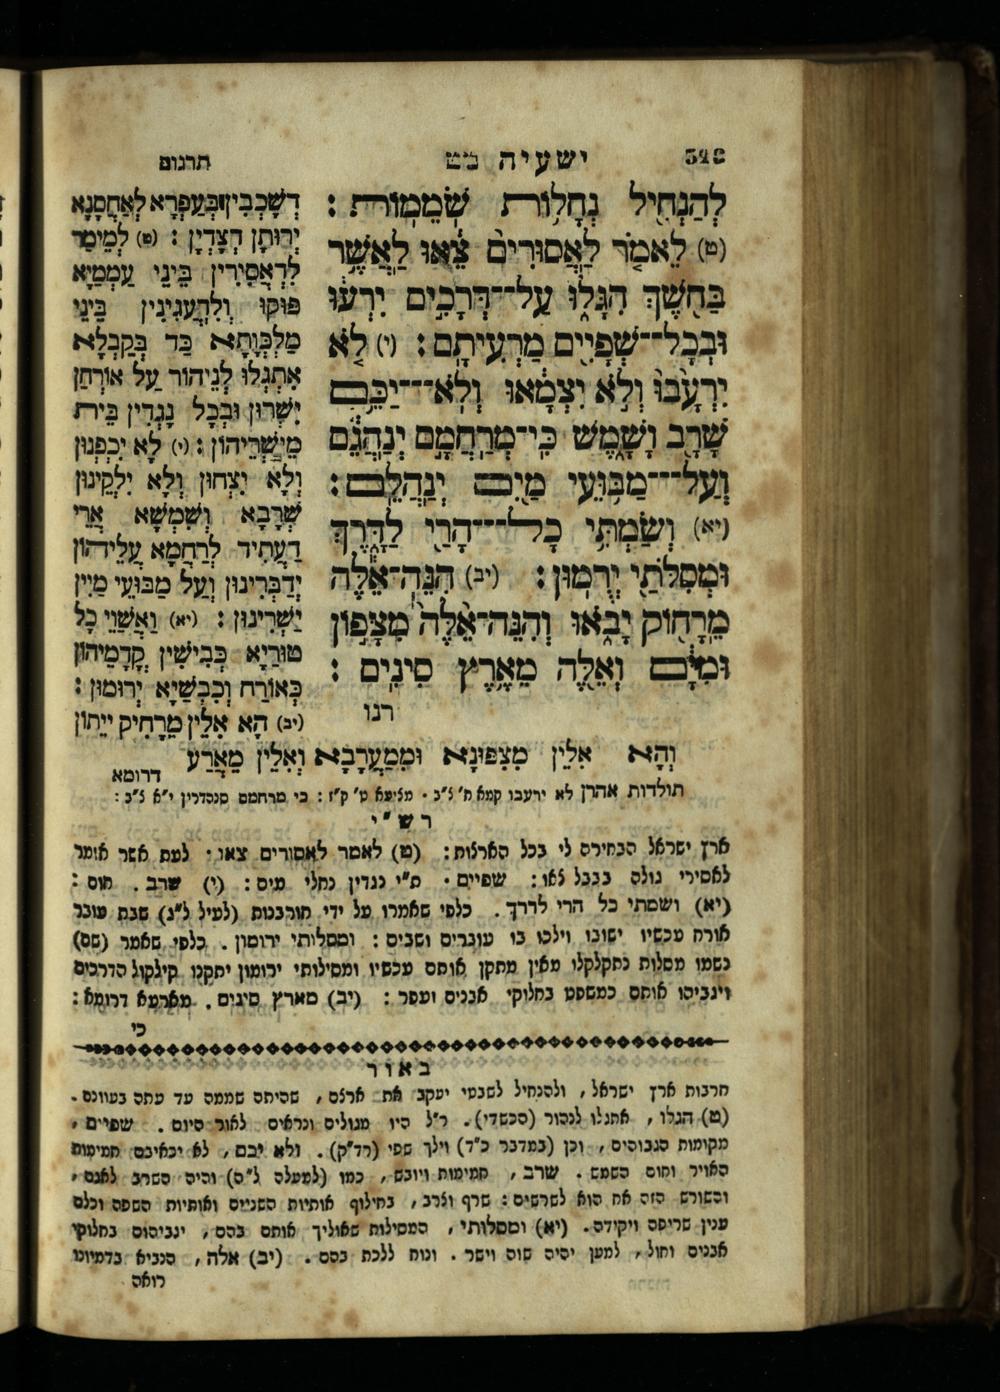 548
ישעיה מט
תרגום
לְהַנְחִ֖יל נְחָל֥וֹת שֹׁמֵמֽוֹת :
(ט) לֵאמֹ֤ר לַֽאֲסוּרִים֙ צֵ֔אוּ לַֽאֲשֶׁ֥ר
בַּחֹ֖שֶׁךְ הִגָּל֑וּ עַל־דְּרָכִ֣ים יִרְע֔וּ
וּבְכָל־שְׁפָיִ֖ים מַרְעִיתָֽם : (י) לֹ֤א
יִרְעָ֙בוּ֙ וְלֹ֣א יִצְמָ֔אוּ וְלֹֽא־יַכֵּ֥ם
שָׁרָ֖ב וָשָׁ֑מֶשׁ כִּֽי־מְרַחֲמָ֣ם יְנַהֲגֵ֔ם
וְעַל־מַבּ֥וּעֵי מַ֖יִם יְנַהֲלֵֽם :
(יא) וְשַׂמְתִּ֥י כָל־הָרַ֖י לַדָּ֑רֶךְ
וּמְסִלֹּתַ֖י יְרֻמֽוּן : (יב) הִנֵּה־אֵ֕לֶּה
מֵֽרָח֖וֹק יָבֹ֑אוּ וְהִנֵּה־אֵ֙לֶּה֙ מִצָּפ֣וֹן
וּמִיָּ֔ם וְאֵ֖לֶּה מֵאֶ֥רֶץ סִינִֽים :
רנו
דְשָׁכְבִין בְּעַפְרָא לְאַחֲסָנָא
יְרוּתָן דְצָדְיָן : (ט) לְמֵימַר
לִדְאֲסִירִין בֵּינֵי עַמְמַיָא
פּוּקוּ וְלִדְעֲגִינִין בֵּינֵי
מַלְכְּוָתָא כַּד בְּקַבְלָא
אִתְגְלוּ לְנֵיהוֹר עַל אוֹרְחַן
יִשְׁרוּן וּבְכָל נָגְדִין בֵּית
מֵישְׁרֵיהוֹן : (י) לָא יִכְפְּנוּן
וְלָא יִצְחוּן וְלָא יִלְקֵינוּן
שְׁרָבָא וְשִׁמְשָׁא אֲרֵי
דַעֲתִיד לְרַחֲמָא עֲלֵיהוֹן
יְדַבְּרִינוּן וְעַל מַבּוּעֵי מַיִין
יַשְׁרִינוּן : (יא) וַאֲשַׁוֵּי כָל
טוּרַיָא כְּבִישִׁין קֳדָמֵיהוֹן
כְּאוֹרַח וְכִבְשַׁיָא יְרוּמוּן :
(יב) הָא אִלֵּין מֵרָחִיק יֵיתוּן
וְהָא אִלֵּין מִצִפּוּנָא וּמִמַּעֲרָבָא וְאִלֵּין מֵאֲרַע
דרומא
תולדות אהרן לא ירעבו קמא ח' נ"ב • מציעא ט' ק"ז : כי מרחמם סנהדרין י"א נ"ב :
רש"י
ארץ ישראל הבחירה לי בכל הארצות : (ט) לאמר לאסורים צאו • לעת אשר אומר
לאסירי גולה בבבל צאו : שפיים • ת"י נגדין נחלי מים : (י) שרב . חום :
(יא) ושמתי כל הרי לדרך . כלפי שאמרו על ידי חורבנות (לעיל ל"ג) שבת עובר
אורח עכשיו ישובו וילכו בו עוברים ושבים : ומסילותי ירומון . כלפי שאמר (שם)
נשמו מסלות נתקלקלו מאין מתקן אותם עכשיו ומסילותי ירומון יתקנו קילקול הדרכים
ויגביהו אותם כמשפט בחלוקי אבנים ועפר : (יב) מארץ סינים . מארעא דרומא :
כי
באור
חרבות ארץ ישראל , ולהנחיל לשבטי יעקב את ארצם , שהיתה שממה עד עתה בעוונם .
(ט) הגלו , אתגלו לנהור (הכשדי). ר"ל היו מגולים ונראים לאור היום . שפיים ,
מקומות הגבוהים , וכן (במדבר כ"ד) וילך שפי (רד"ק) . ולא יכם , לא יכאיבם חמימות
האויר וחום השמש . שרב , חמימות ויובש , כמו (למעלה ל"ה) והיה השרב לאגם ,
והשורש הזה אח הוא לשרשים : שרף וצרב , בחילוף אותיות השניים ואותיות השפה וכלם
ענין שריפה ויקידה . (יא) ומסלותי , המסילות שאוליך אותם בהם , יגביהום בחלוקי
אבנים וחול , למען יהיה שוה וישר . ונוח ללכת בהם . (יב) אלה , הנביא בדמיונו
רואה